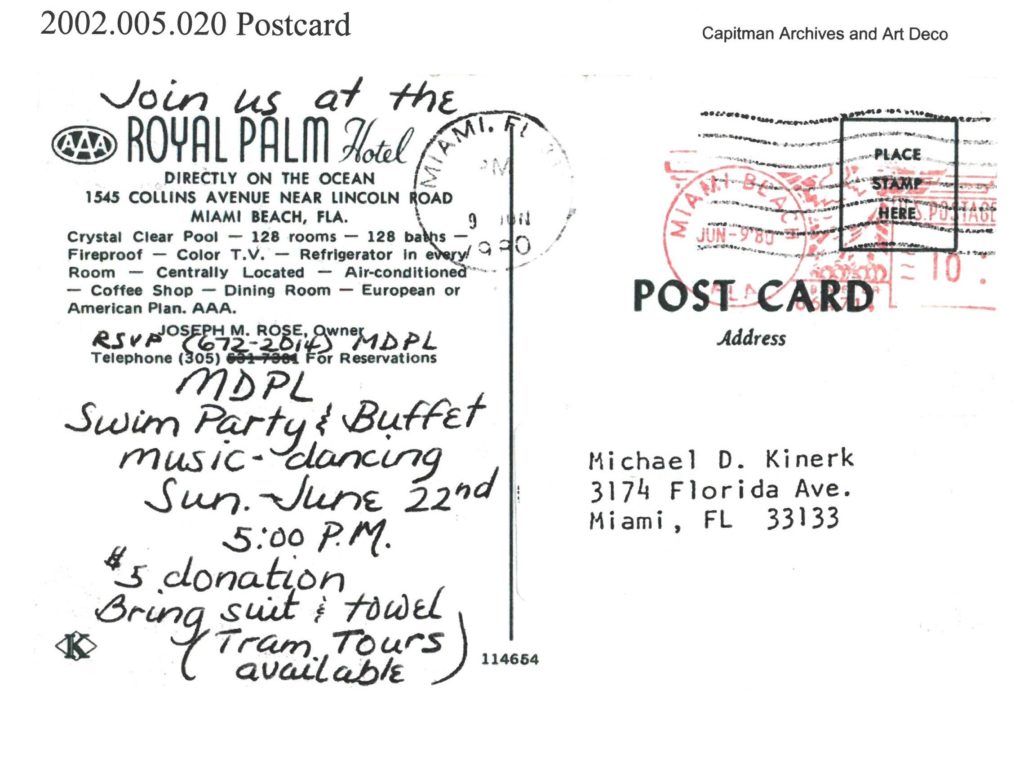 2002.005.020 Postcard
Capitman Archives and Art Deco
Join us at the
AAA
ROYAL PALM Hotel
DIRECTLY ON THE OCEAN
1545 COLLINS AVENUE NEAR LINCOLN ROAD
MIAMI BEACH, FLA.
Crystal Clear Pool — 128 rooms — 128 baths —
Fireproof — Color T.V. — Refrigerator in every
Room — Centrally Located — Air-conditioned
— Coffee Shop — Dining Room — European or
American Plan. AAA.
JOSEPH M. ROSE, Owner
RSVP (672-2014) MDPL
Telephone (305) For Reservations
MDPL
Swim Party & Buffet
music - dancing
Sun. June 22nd
5:00 P.M.
$5 donation
Bring suit & towel
(Tram Tours
available)
K
114654
MIAMI, FL
PM
9 JUN
1980
MIAMI BEACH
JUN-9'80
FLA
U.S. POSTAGE
10
PLACE
STAMP
HERE
POST CARD
Address
Michael D. Kinerk
3174 Florida Ave.
Miami, FL 33133